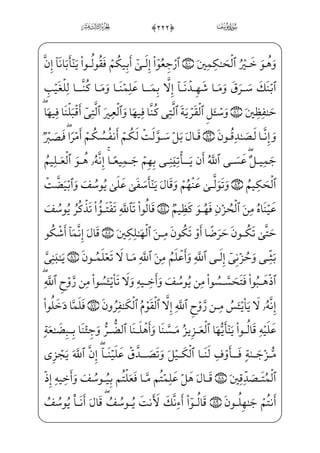 سُورَةُ يُوسُفَ ﴿٢٢٢﴾ الجُزْءُ الثَّالِثَ عَشَر
وَهُوَ خَيْرُ الْحَٰكِمِينَ ﴿٨٠﴾ ارْجِعُوٓا۟ إِلَىٰٓ أَبِيكُمْ فَقُولُوا۟ يَٰٓأَبَانَآ إِنَّ
ابْنَكَ سَرَقَ وَمَا شَهِدْنَآ إِلَّا بِمَا عَلِمْنَا وَمَا كُنَّا لِلْغَيْبِ
حَٰفِظِينَ ﴿٨١﴾ وَسْـَٔلِ الْقَرْيَةَ الَّتِى كُنَّا فِيهَا وَالْعِيرَ الَّتِىٓ أَقْبَلْنَا فِيهَا ۖ
وَإِنَّا لَصَٰدِقُونَ ﴿٨٢﴾ قَالَ بَلْ سَوَّلَتْ لَكُمْ أَنفُسُكُمْ أَمْرًا ۖ فَصَبْرٌ
جَمِيلٌ ۖ عَسَى اللَّهُ أَن يَأْتِيَنِى بِهِمْ جَمِيعًا ۚ إِنَّهُۥ هُوَ الْعَلِيمُ
الْحَكِيمُ ﴿٨٣﴾ وَتَوَلَّىٰ عَنْهُمْ وَقَالَ يَٰٓأَسَفَىٰ عَلَىٰ يُوسُفَ وَابْيَضَّتْ
عَيْنَاهُ مِنَ الْحُزْنِ فَهُوَ كَظِيمٌ ﴿٨٤﴾ قَالُوا۟ تَاللَّهِ تَفْتَؤُا۟ تَذْكُرُ يُوسُفَ
حَتَّىٰ تَكُونَ حَرَضًا أَوْ تَكُونَ مِنَ الْهَٰلِكِينَ ﴿٨٥﴾ قَالَ إِنَّمَآ أَشْكُوا۟
بَثِّى وَحُزْنِىٓ إِلَى اللَّهِ وَأَعْلَمُ مِنَ اللَّهِ مَا لَا تَعْلَمُونَ ﴿٨٦﴾ يَٰبَنِىَّ
اذْهَبُوا۟ فَتَحَسَّسُوا۟ مِن يُوسُفَ وَأَخِيهِ وَلَا تَا۟يْـَٔسُوا۟ مِن رَّوْحِ اللَّهِ ۖ
إِنَّهُۥ لَا يَا۟يْـَٔسُ مِن رَّوْحِ اللَّهِ إِلَّا الْقَوْمُ الْكَٰفِرُونَ ﴿٨٧﴾ فَلَمَّا دَخَلُوا۟
عَلَيْهِ قَالُوا۟ يَٰٓأَيُّهَا الْعَزِيزُ مَسَّنَا وَأَهْلَنَا الضُّرُّ وَجِئْنَا بِبِضَٰعَةٍ
مُّزْجَىٰةٍ فَأَوْفِ لَنَا الْكَيْلَ وَتَصَدَّقْ عَلَيْنَآ ۖ إِنَّ اللَّهَ يَجْزِى
الْمُتَصَدِّقِينَ ﴿٨٨﴾ قَالَ هَلْ عَلِمْتُم مَّا فَعَلْتُم بِيُوسُفَ وَأَخِيهِ إِذْ
أَنتُمْ جَٰهِلُونَ ﴿٨٩﴾ قَالُوٓا۟ أَءِنَّكَ لَأَنتَ يُوسُفُ ۖ قَالَ أَنَا۠ يُوسُفُ